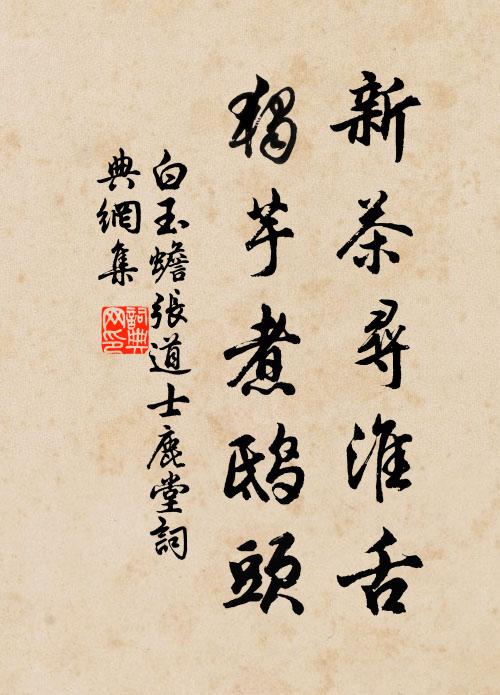 新茶尋淮舌
獨芋煮鴟頭
白玉蟾張道士鹿堂詞
典網集
詞典
网印